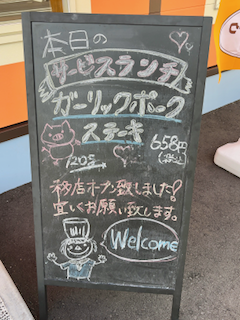 本日の
サービスランチ
ガーリックポーク
ステーキ
658円
120g
(税込)
移店オープン致しました!
宜しくお願い致します。
Welcome